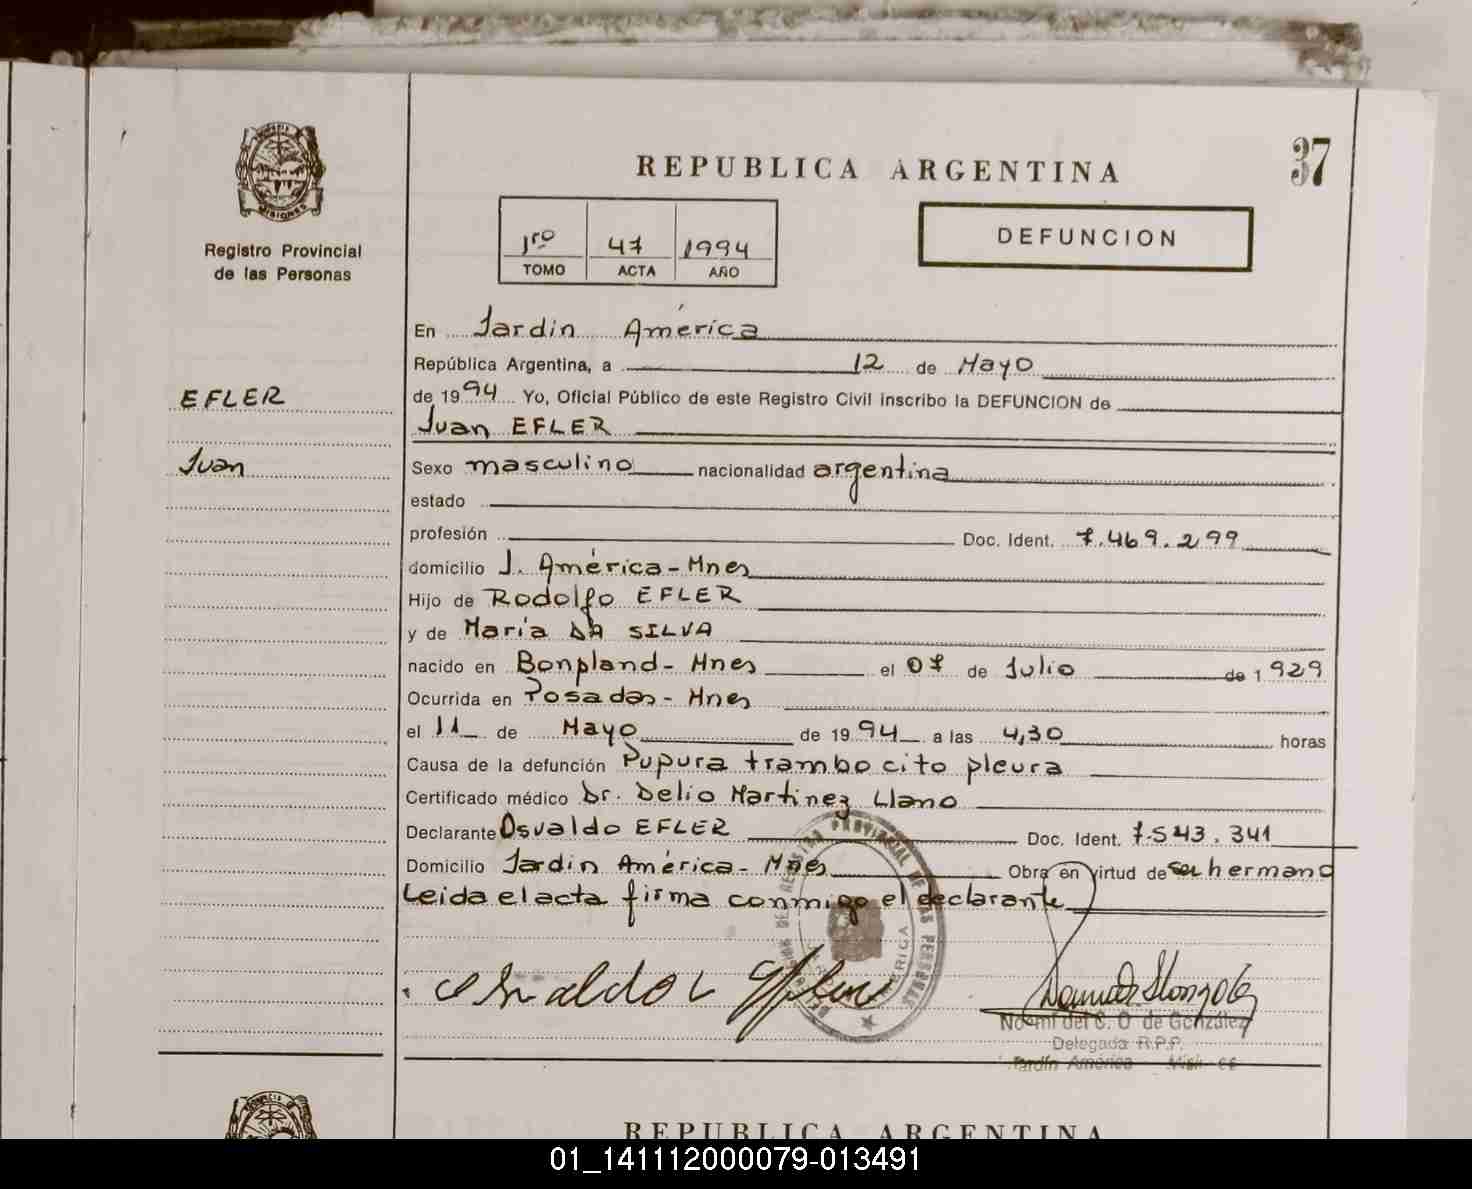 37
REPUBLICA ARGENTINA
MISIONES
Registro Provincial
de las Personas
1ro 47 1994
TOMO ACTA AÑO
DEFUNCION
EFLER
Juan
En Jardin América
República Argentina, a 12 de Mayo
de 1994 Yo, Oficial Público de este Registro Civil inscribo la DEFUNCION de
Juan EFLER
Sexo masculino nacionalidad argentina
estado
profesión Doc. Ident. 7.469.299
domicilio J. América - Mnes
Hijo de Rodolfo EFLER
y de María DA SILVA
nacido en Bonpland - Mnes el 07 de Julio de 1929
Ocurrida en Posadas - Mnes
el 11 de Mayo de 1994 a las 4,30 horas
Causa de la defunción Pupura trambo cito pleura
Certificado médico Dr. Delio Martinez Llano
Declarante Osvaldo EFLER Doc. Ident. 7.543.341
Domicilio Jardin América - Mnes Obra en virtud de ser hermano
Leida el acta firma conmigo el declarante
Noemí del C. O de González
Delegada R.P.P.
Jardín América
REPUBLICA ARGENTINA
01_141112000079-013491